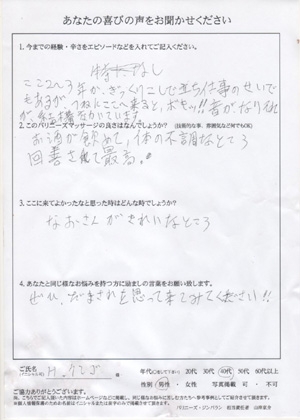 あなたの喜びの声をお聞かせください
1. 今までの経験・辛さをエピソードなどを入れてご記入ください。
特になし
ここ2〜3年が、ぎっくりこしで立ち仕事のせいで
もあるが、つねにここへ来ると、ボキッ!!音がなり
が
2. このバリニーズマッサージの良さはなんでしょうか? (技術的な事、雰囲気など何でもOK)
お酒が飲めて、体の不調なところ
回善されて最高。
3. ここに来てよかったなと思った時はどんな時でしょうか?
なおさんがきれいなところ
4. あなたと同じ様なお悩みを持つ方に励ましの言葉をお願い致します。
ぜひ、だまされたと思って来てみてください!!
ご氏名
(イニシャル可)
H. 様
年代 20代 30代 40代 50代 60代以上
性別 男性 ・ 女性 写真掲載 可 ・ 不可
ご協力ありがとうございます。
バリニーズ・ジンバラン